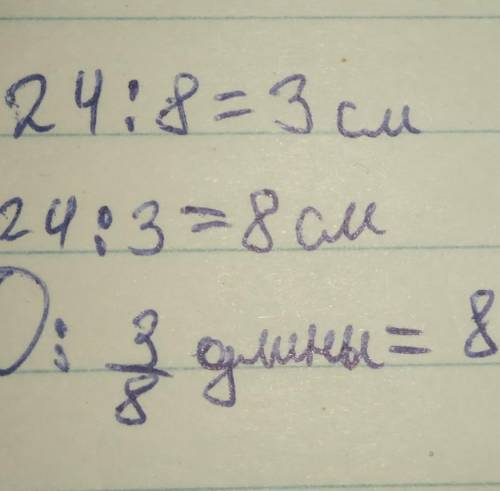 24:8=3см
24:3=8см
О: 3/8 длины=8